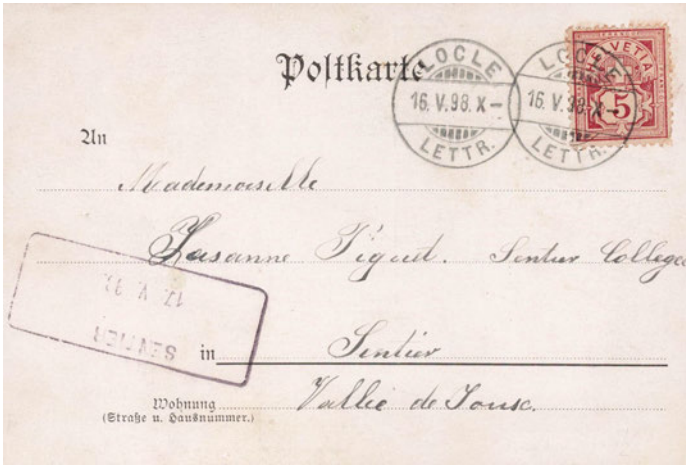 Postkarte
LOCLE
16. V. 98. X—
LETTR.
LOCLE
16. V. 98. X—
LETTR.
FRANCO
HELVETIA
5
An
Mademoiselle
Susanne Piguet. Sentier College
17. V. 9
SENTIER
in Sentier
Wohnung
(Straße u. Hausnummer.)
Vallée de Joux.